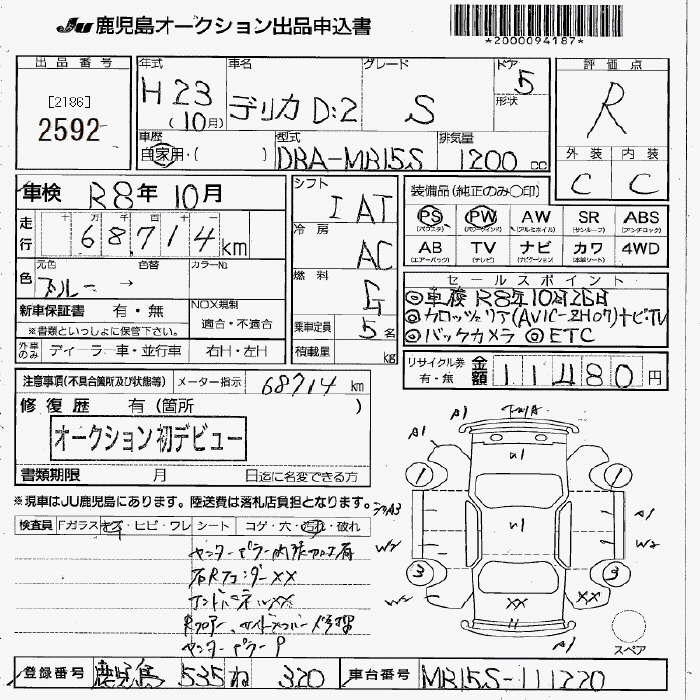 JU 鹿児島オークション出品申込書
*2000094187*
出品番号
[2186]
2592
年式
H 23
(10月)
車名
デリカ D:2
グレード
S
ドア
5
形状
評価点
R
車歴
自家用・( )
型式
DBA-MB15S
排気量
1200 cc
外装 内装
C C
車検 R8年 10月
シフト
I AT
装備品(純正のみ〇印)
走行
十 万 千 百 十
68714 km
PS PW AW SR ABS
(パワステ) (パワーウィンド) (アルミホイル) (サンルーフ) (アンチロック)
冷房
AC
AB TV ナビ カワ 4WD
(エアーバック) (テレビ) (ナビゲーション) (本革シート)
色
元色 色替 カラーNo
ブルー →
燃料
G
セールスポイント
◎車検 R8年10月26日
◎カロッツェリア(AVIC-ZH07)ナビTV
◎バックカメラ ◎ETC
新車保証書 有・無
※書類といっしょに保管下さい。
NOX規制
適合・不適合
乗車定員 5名
外車のみ ディーラー車・並行車 右H・左H
積載量 kg
リサイクル券
有・無
金額 11480円
注意事項(不具合箇所及び状態等) メーター指示 68714 km
修復歴 有(箇所 )
オークション初デビュー
書類期限 月 日迄に名変できる方
※現車はJU鹿児島にあります。陸送費は落札店負担となります。
検査員 Fガラス キズ・ヒビ・ワレ シート コゲ・穴・汚れ・破れ
センターピラー内張加工有
右Rフェンダーxx
エンドパネルxx
センターピラーP
A1
A1
U1
1
1
A1
U1
W2
W2
3
3
XX
XX
A1
スペア
登録番号 鹿児島 535 ね 320
車台番号 MB15S-111220